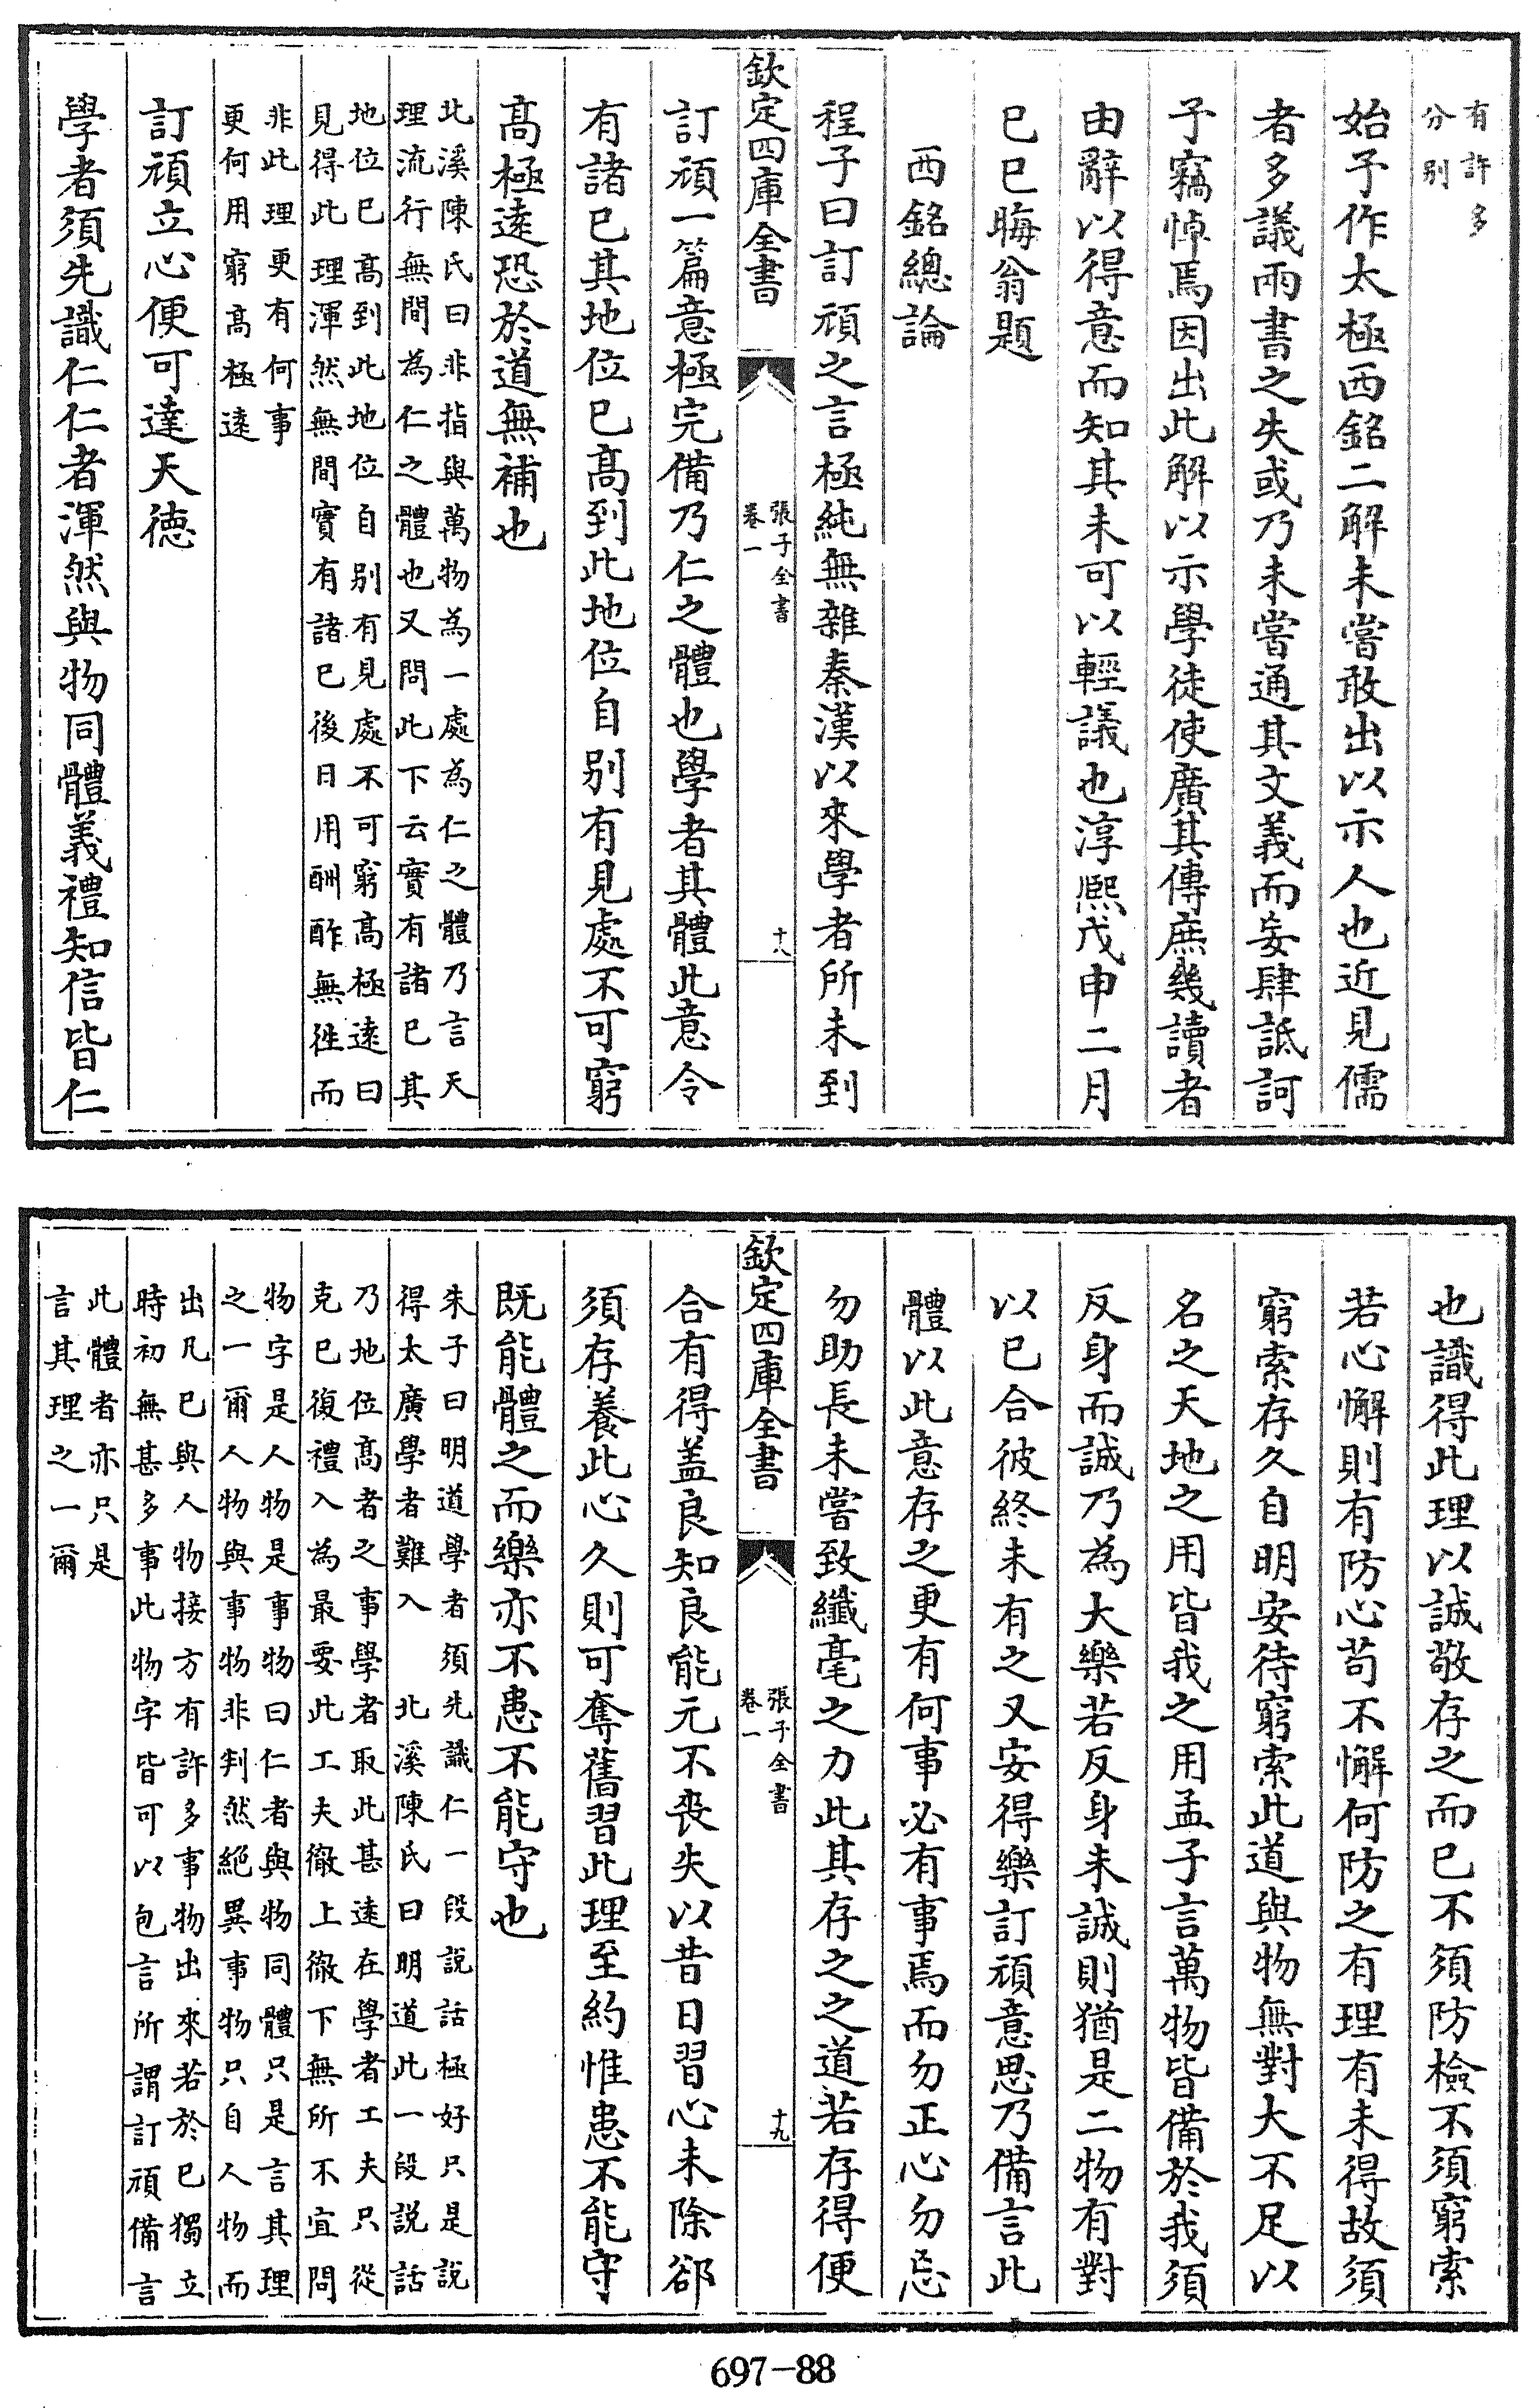 有許多
分别
始予作太極西銘二解未嘗敢出以示人也近見儒
者多議兩書之失或乃未嘗通其文義而妄肆詆訶
予竊悼焉因出此解以示學徒使廣其傳庶幾讀者
由辭以得意而知其未可以輕議也淳熈戊申二月
已巳晦翁題
西銘總論
程子曰訂頑之言極純無雜秦漢以來學者所未到
欽定四庫全書
張子全書
卷一
十八
訂頑一篇意極完備乃仁之體也學者其體此意令
有諸已其地位已髙到此地位自别有見處不可窮
髙極逺恐於道無補也
北溪陳氏曰非指與萬物為一處為仁之體乃言天
理流行無間為仁之體也又問此下云實有諸已其
地位已髙到此地位自别有見處不可窮髙極逺曰
見得此理渾然無間實有諸已後日用酬酢無徃而
非此理更有何事
更何用窮髙極逺
訂頑立心便可達天徳
學者須先識仁仁者渾然與物同體義禮知信皆仁
也識得此理以誠敬存之而已不須防檢不須窮索
若心懈則有防心苟不懈何防之有理有未得故須
窮索存久自明安待窮索此道與物無對大不足以
名之天地之用皆我之用孟子言萬物皆備於我須
反身而誠乃為大樂若反身未誠則猶是二物有對
以已合彼終未有之又安得樂訂頑意思乃備言此
體以此意存之更有何事必有事焉而勿正心勿忘
勿助長未嘗致纎毫之力此其存之之道若存得便
欽定四庫全書
張子全書
卷一
十九
合有得盖良知良能元不丧失以昔日習心未除郤
須存養此心久則可奪舊習此理至約惟患不能守
既能體之而樂亦不患不能守也
朱子曰明道學者須先識仁一段説話極好只是説
得太廣學者難入 北溪陳氏曰明道此一段説話
乃地位髙者之事學者取此甚逺在學者工夫只從
克已復禮入為最要此工夫徹上徹下無所不宜問
物字是人物是事物曰仁者與物同體只是言其理
之一爾人物與事物非判然絶異事物只自人物而
出凡已與人物接方有許多事物出來若於已獨立
時初無甚多事此物字皆可以包言所謂訂頑備言
此體者亦只是
言其理之一爾
697-88